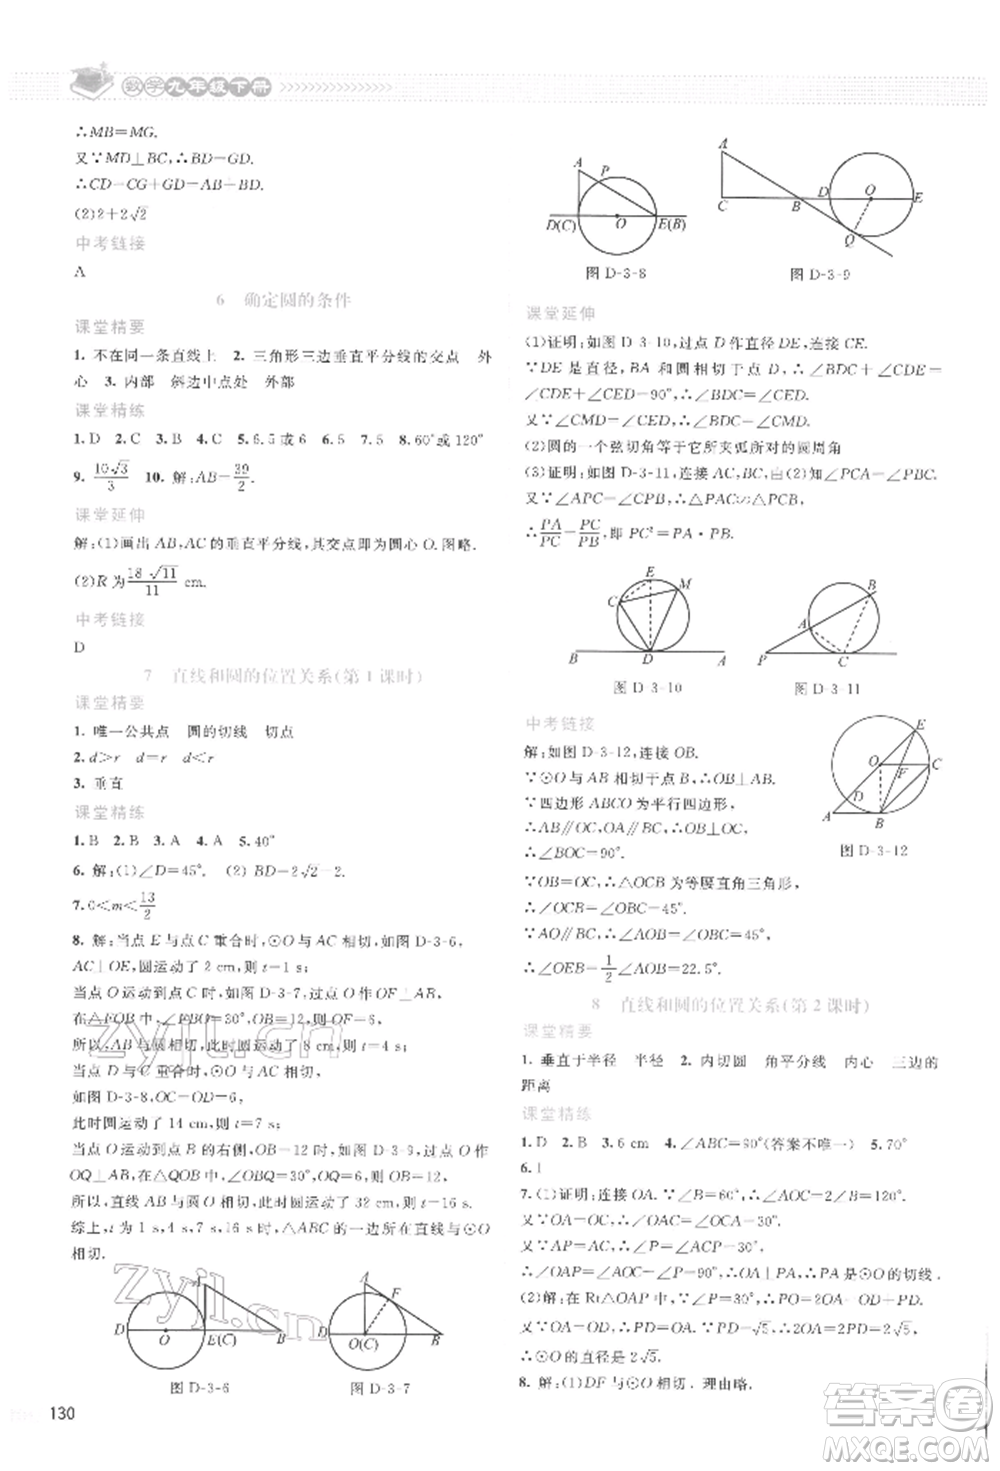 数学九年级下册
∴MB=MG.
又∵MD⊥BC,∴BD=GD.
∴CD=CG+GD=AB+BD.
(2)2+2√2
中考链接
A
6 确定圆的条件
课堂精要
1. 不在同一条直线上 2. 三角形三边垂直平分线的交点 外
心 3. 内部 斜边中点处 外部
课堂精练
1. D 2. C 3. B 4. C 5. 6.5或6 6. 5 7. 5 8. 60°或120°
9. 10√3/3 10. 解:AB=39/2.
课堂延伸
解:(1)画出AB,AC的垂直平分线,其交点即为圆心O.图略.
(2)R为18√11/11 cm.
中考链接
D
7 直线和圆的位置关系(第1课时)
课堂精要
1. 唯一公共点 圆的切线 切点
2. d>r d=r d<r
3. 垂直
课堂精练
1. B 2. B 3. A 4. A 5. 40°
6. 解:(1)∠D=45°. (2)BD=2√2-2.
7. 0<m<13/2
8. 解:当点E与点C重合时,⊙O与AC相切,如图D-3-6,
AC⊥OE,圆运动了2 cm,则t=1 s;
当点O运动到点C时,如图D-3-7,过点C作CF⊥AB,
在△FOB中,∠FBO=30°,OB=12,则FO=6.
所以,AB与该圆相切.圆运动了8 cm,t=4 s;
当点D运动到与点C重合时,AC与⊙O相切,
如图D-3-8,OC=OD=6,
此时圆运动了14 cm,t=7 s;
当点O运动到点B的右侧,OB=12时,如图D-3-9,过点O作
OQ⊥AB,在△QOB中,∠OBQ=30°,则OQ=6,
所以,直线AB与圆O相切,此时圆运动了32 cm,t=16 s.
综上,t为1 s,4 s,7 s,16 s时,△ABC的一边所在直线与⊙O
相切.
A
D O E(C) B
图D-3-6
A F
D O(C) B
图D-3-7
130
A P
D(C) O E(B)
图D-3-8
A
C B D O E
Q
图D-3-9
课堂延伸
(1)证明:如图D-3-10,过点D作直径DE,连接CE.
∵DE是直径,BA和圆相切于点D,∴∠BDC+∠CDE=
∠CDE+∠CED=90°,∴∠BDC=∠CED.
又∵∠CMD=∠CED,∴∠BDC=∠CMD.
(2)圆的一个弦切角等于它所夹弧所对的圆周角
(3)证明:如图D-3-11,连接AC,BC,由(2)可知∠PCA=∠PBC.
又∵∠APC=∠CPB,∴△PAC∽△PCB.
∴PA/PC=PC/PB,即PC²=PA·PB.
E
C M
B D A
图D-3-10
B
A
P C
图D-3-11
中考链接
解:如图D-3-12,连接OB.
∵⊙O与AB相切于点B,∴OB⊥AB.
∵四边形ABCO为平行四边形,
∴AB∥OC,OA∥BC,∴OB⊥OC,
∴∠BOC=90°.
∵OB=OC,∴△OCB为等腰直角三角形,
∴∠OCB=∠OBC=45°.
∵AO∥BC,∴∠AOB=∠OBC=45°,
∴∠OEB=1/2∠AOB=22.5°.
E
O F C
D
A B
图D-3-12
8 直线和圆的位置关系(第2课时)
课堂精要
1. 垂直于半径 半径 2. 内切圆 角平分线 内心 三边的
距离
课堂精练
1. D 2. B 3. 6 cm 4. ∠ABC=90°(答案不唯一) 5. 70°
6. 1
7. (1)证明:连接OA.∵∠B=60°,∴∠AOC=2∠B=120°.
又∵OA=OC,∴∠OAC=∠OCA=30°.
又∵AP=AC,∴∠P=∠ACP=30°,
∴∠OAP=∠AOC-∠P=90°,∴OA⊥PA,∴PA是⊙O的切线.
(2)解:在Rt△OAP中,∵∠P=30°,∴PO=2OA=OD+PD.
又∵OA=OD,∴PD=OA.∵PD=√5,∴2OA=2PD=2√5,
∴⊙O的直径是2√5.
8. 解:(1)DF与⊙O相切.理由略.
zyjl.cn
zyjl.cn
答案圈
MXQE.COM